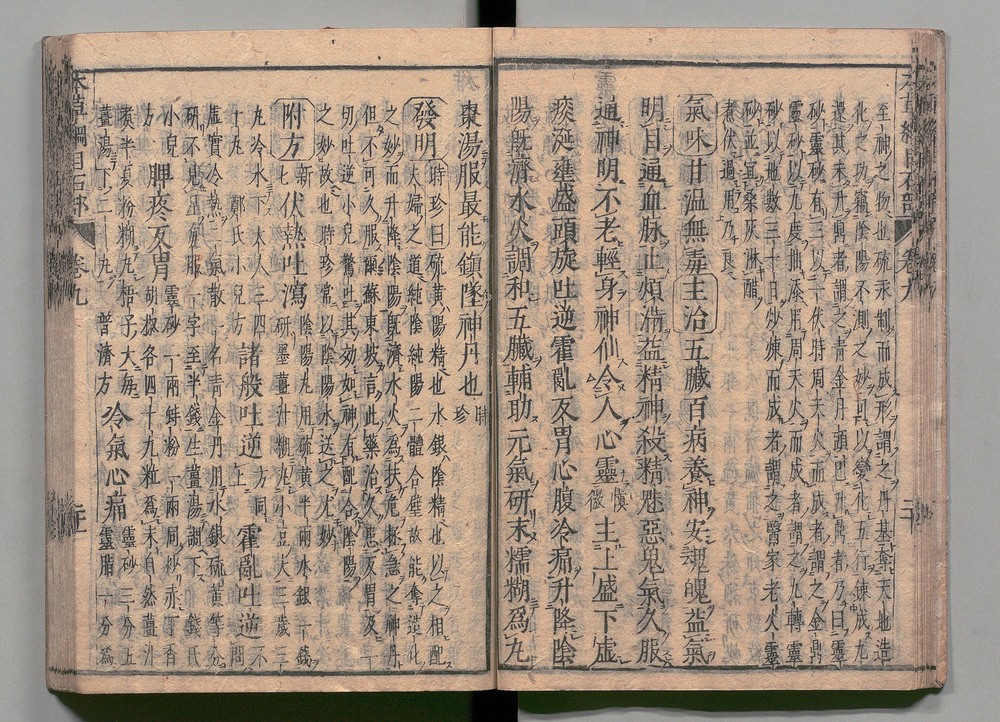 至神之物也硫汞制而成形謂之丹基奪天地造
化之功竊陰陽不測之妙可以變化五行鍊成九
還其未升鼎者謂之青金丹頭已升鼎者乃曰靈
砂靈砂有三以一伏時周天火而成者謂之金鼎
靈砂以九度抽添用周天火而成者謂之九轉靈
砂以地數三十日炒煉而成者謂之醫家老火靈
砂並宜桑灰淋醋
煮伏過用乃良
氣味甘溫無毒主治五臟百病養神安魂魄益氣
明目通血脉止煩滿益精神殺精魅惡鬼氣久服
通神明不老輕身神仙令人心靈愼微主上盛下虛
痰涎壅盛頭旋吐逆霍亂反胃心腹冷痛升降陰
陽旣濟水火調和五臟輔助元氣研末糯糊爲丸
棗湯服最能鎮墜神丹也時珍
發明時珍曰硫黃陽精也水銀陰精也以之相配
夫婦之道純陰純陽二體合璧故能奪造化
之妙而升降陰陽旣濟水火爲扶危拯急之神丹
但不可久服爾蘇東坡言此藥治久患反胃及一
切吐逆小兒驚吐其効如神有配合陰陽
之妙故也時珍常以陰陽水送之尤妙
附方新七伏熱吐瀉陰陽丸用硫黃半兩水銀一錢
研墨薑汁糊丸小豆大三歲三
丸冷水下大人三四
十丸 鄭氏小兒方諸般吐逆方同上霍亂吐逆不
問
虛實冷熱二氣散一名青金丹用水銀硫黃等分
研不見星每服一字至半錢生薑湯調下 錢氏
小兒
方脾疼反胃靈砂一兩蚌粉一兩同炒赤丁香
胡椒各四十九粒爲末自然薑汁
煮半夏粉糊丸梧子大每
薑湯下二十丸 普濟方冷氣心痛靈砂三分五
靈脂一分爲
本草綱目石部 卷九